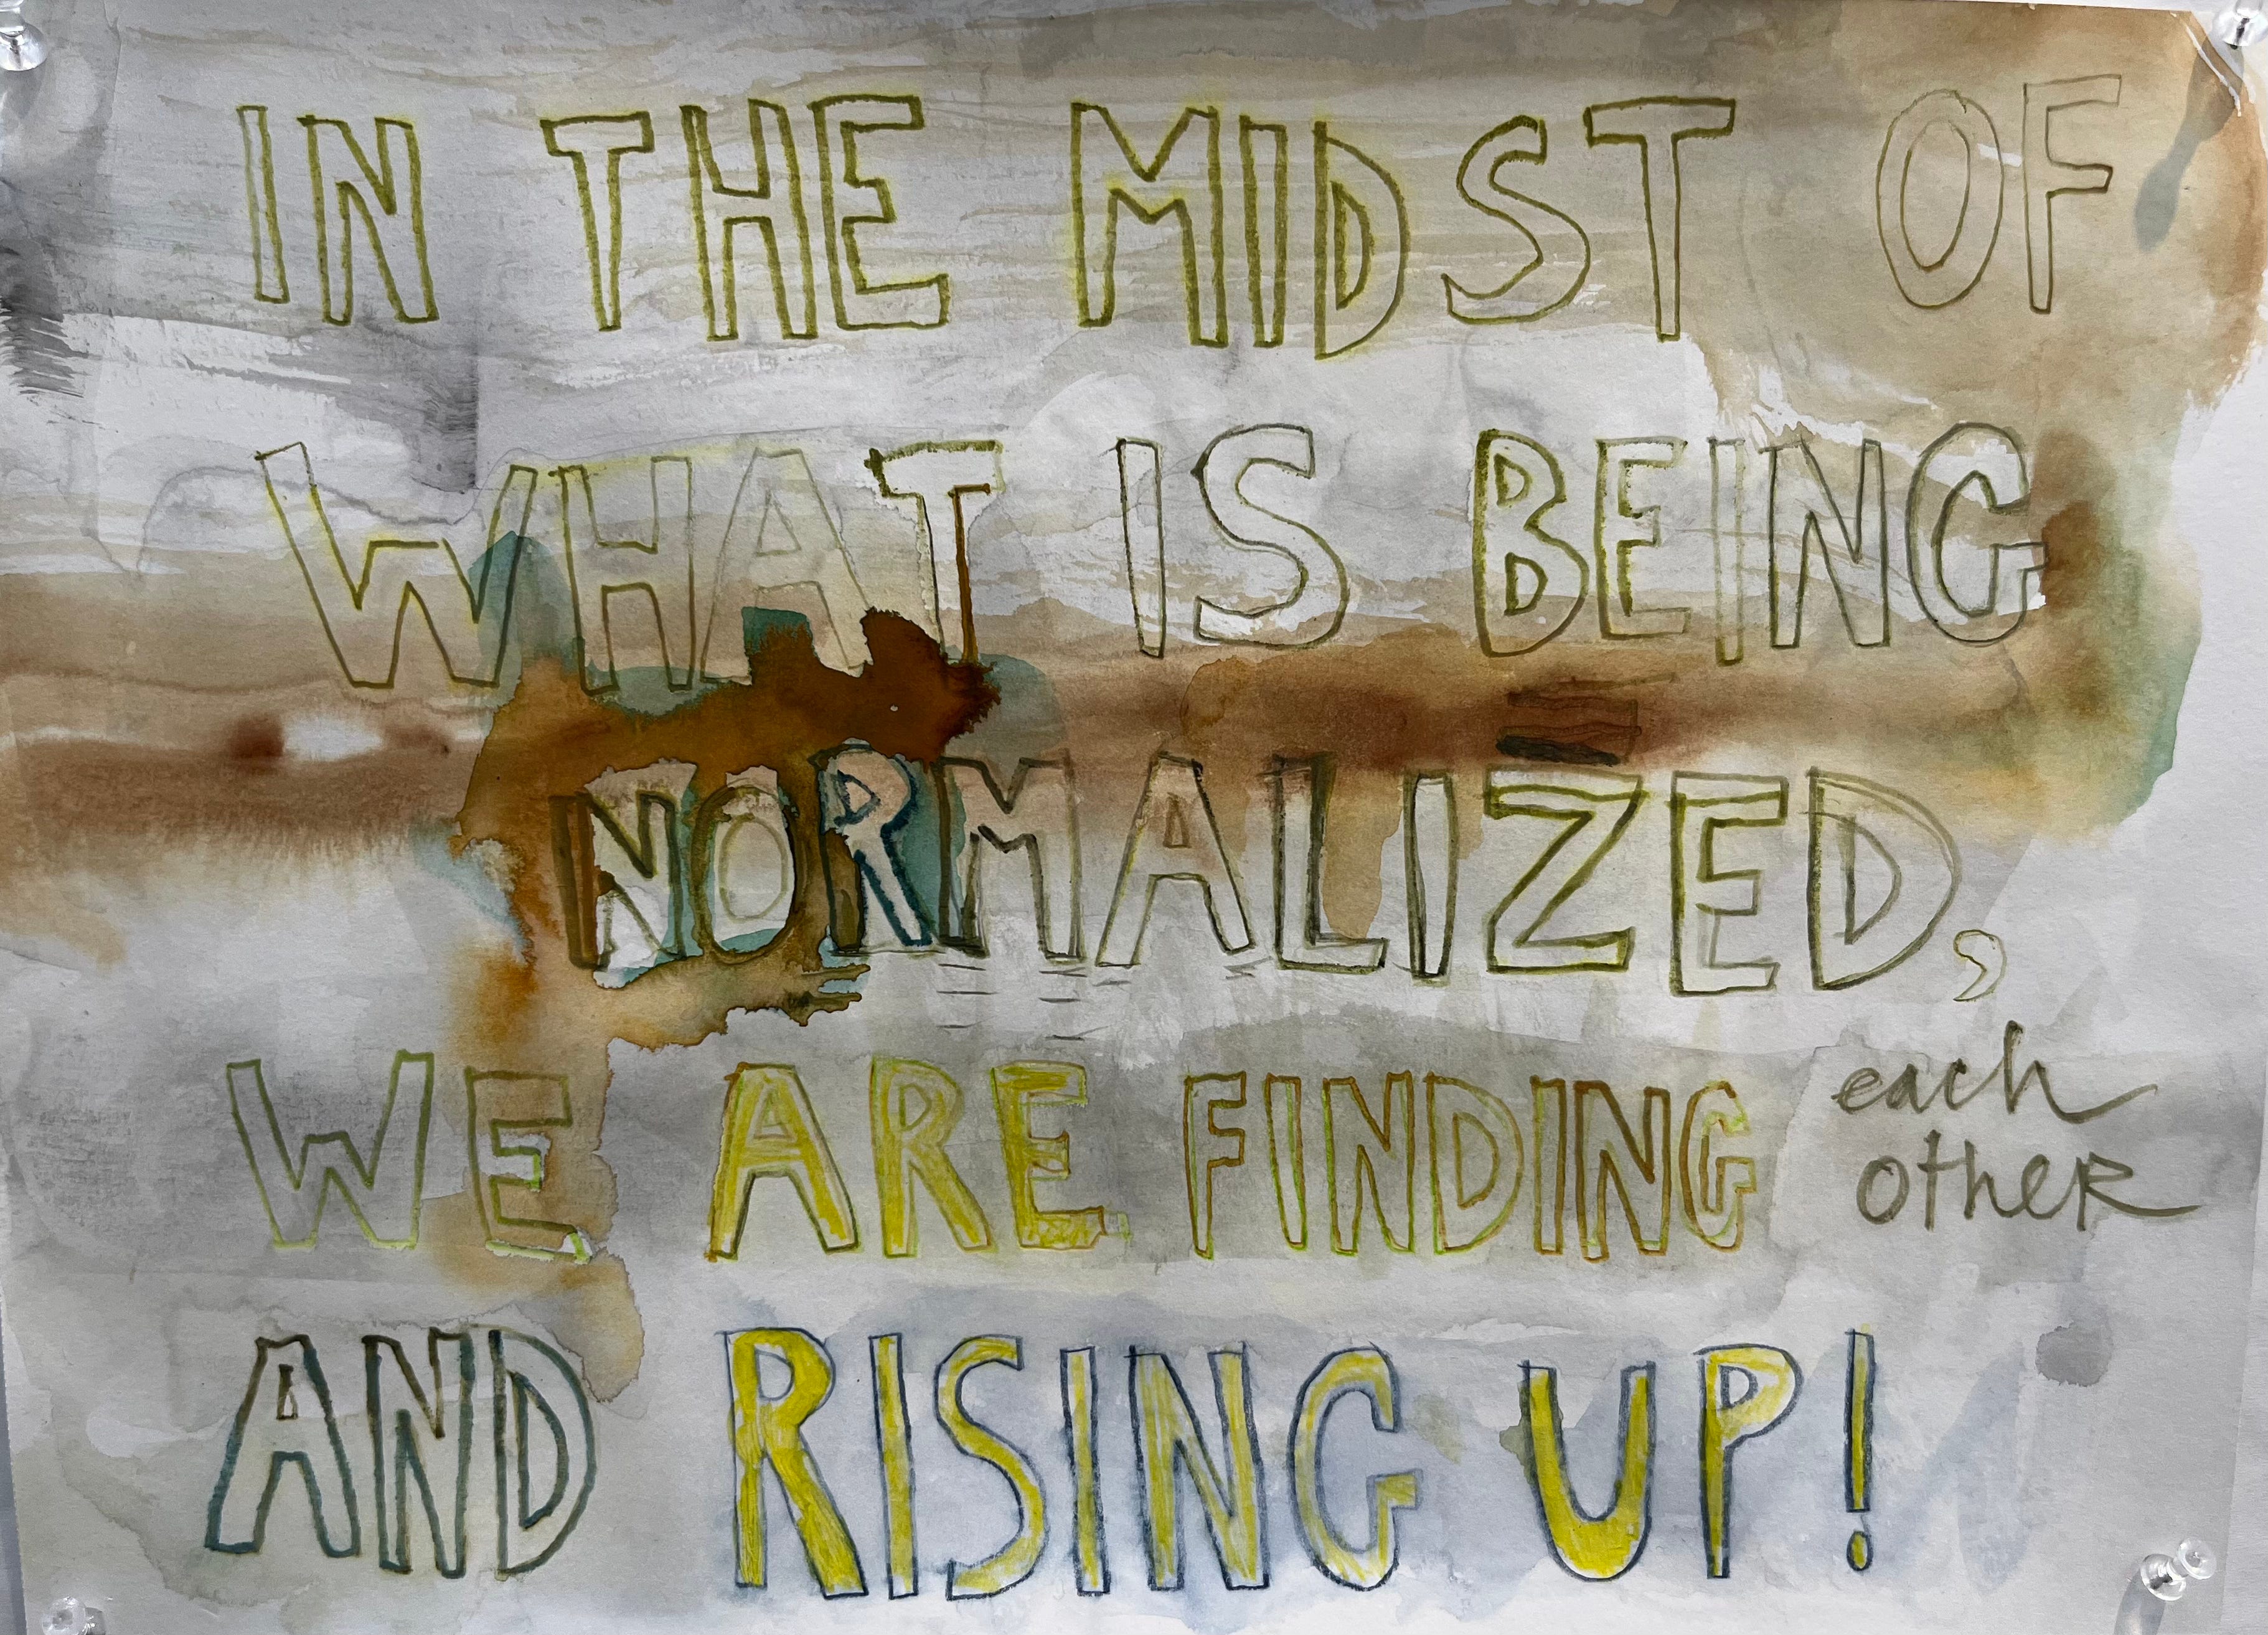 IN THE MIDST OF
WHAT IS BEING
NORMALIZED,
WE ARE FINDING each other
AND RISING UP!